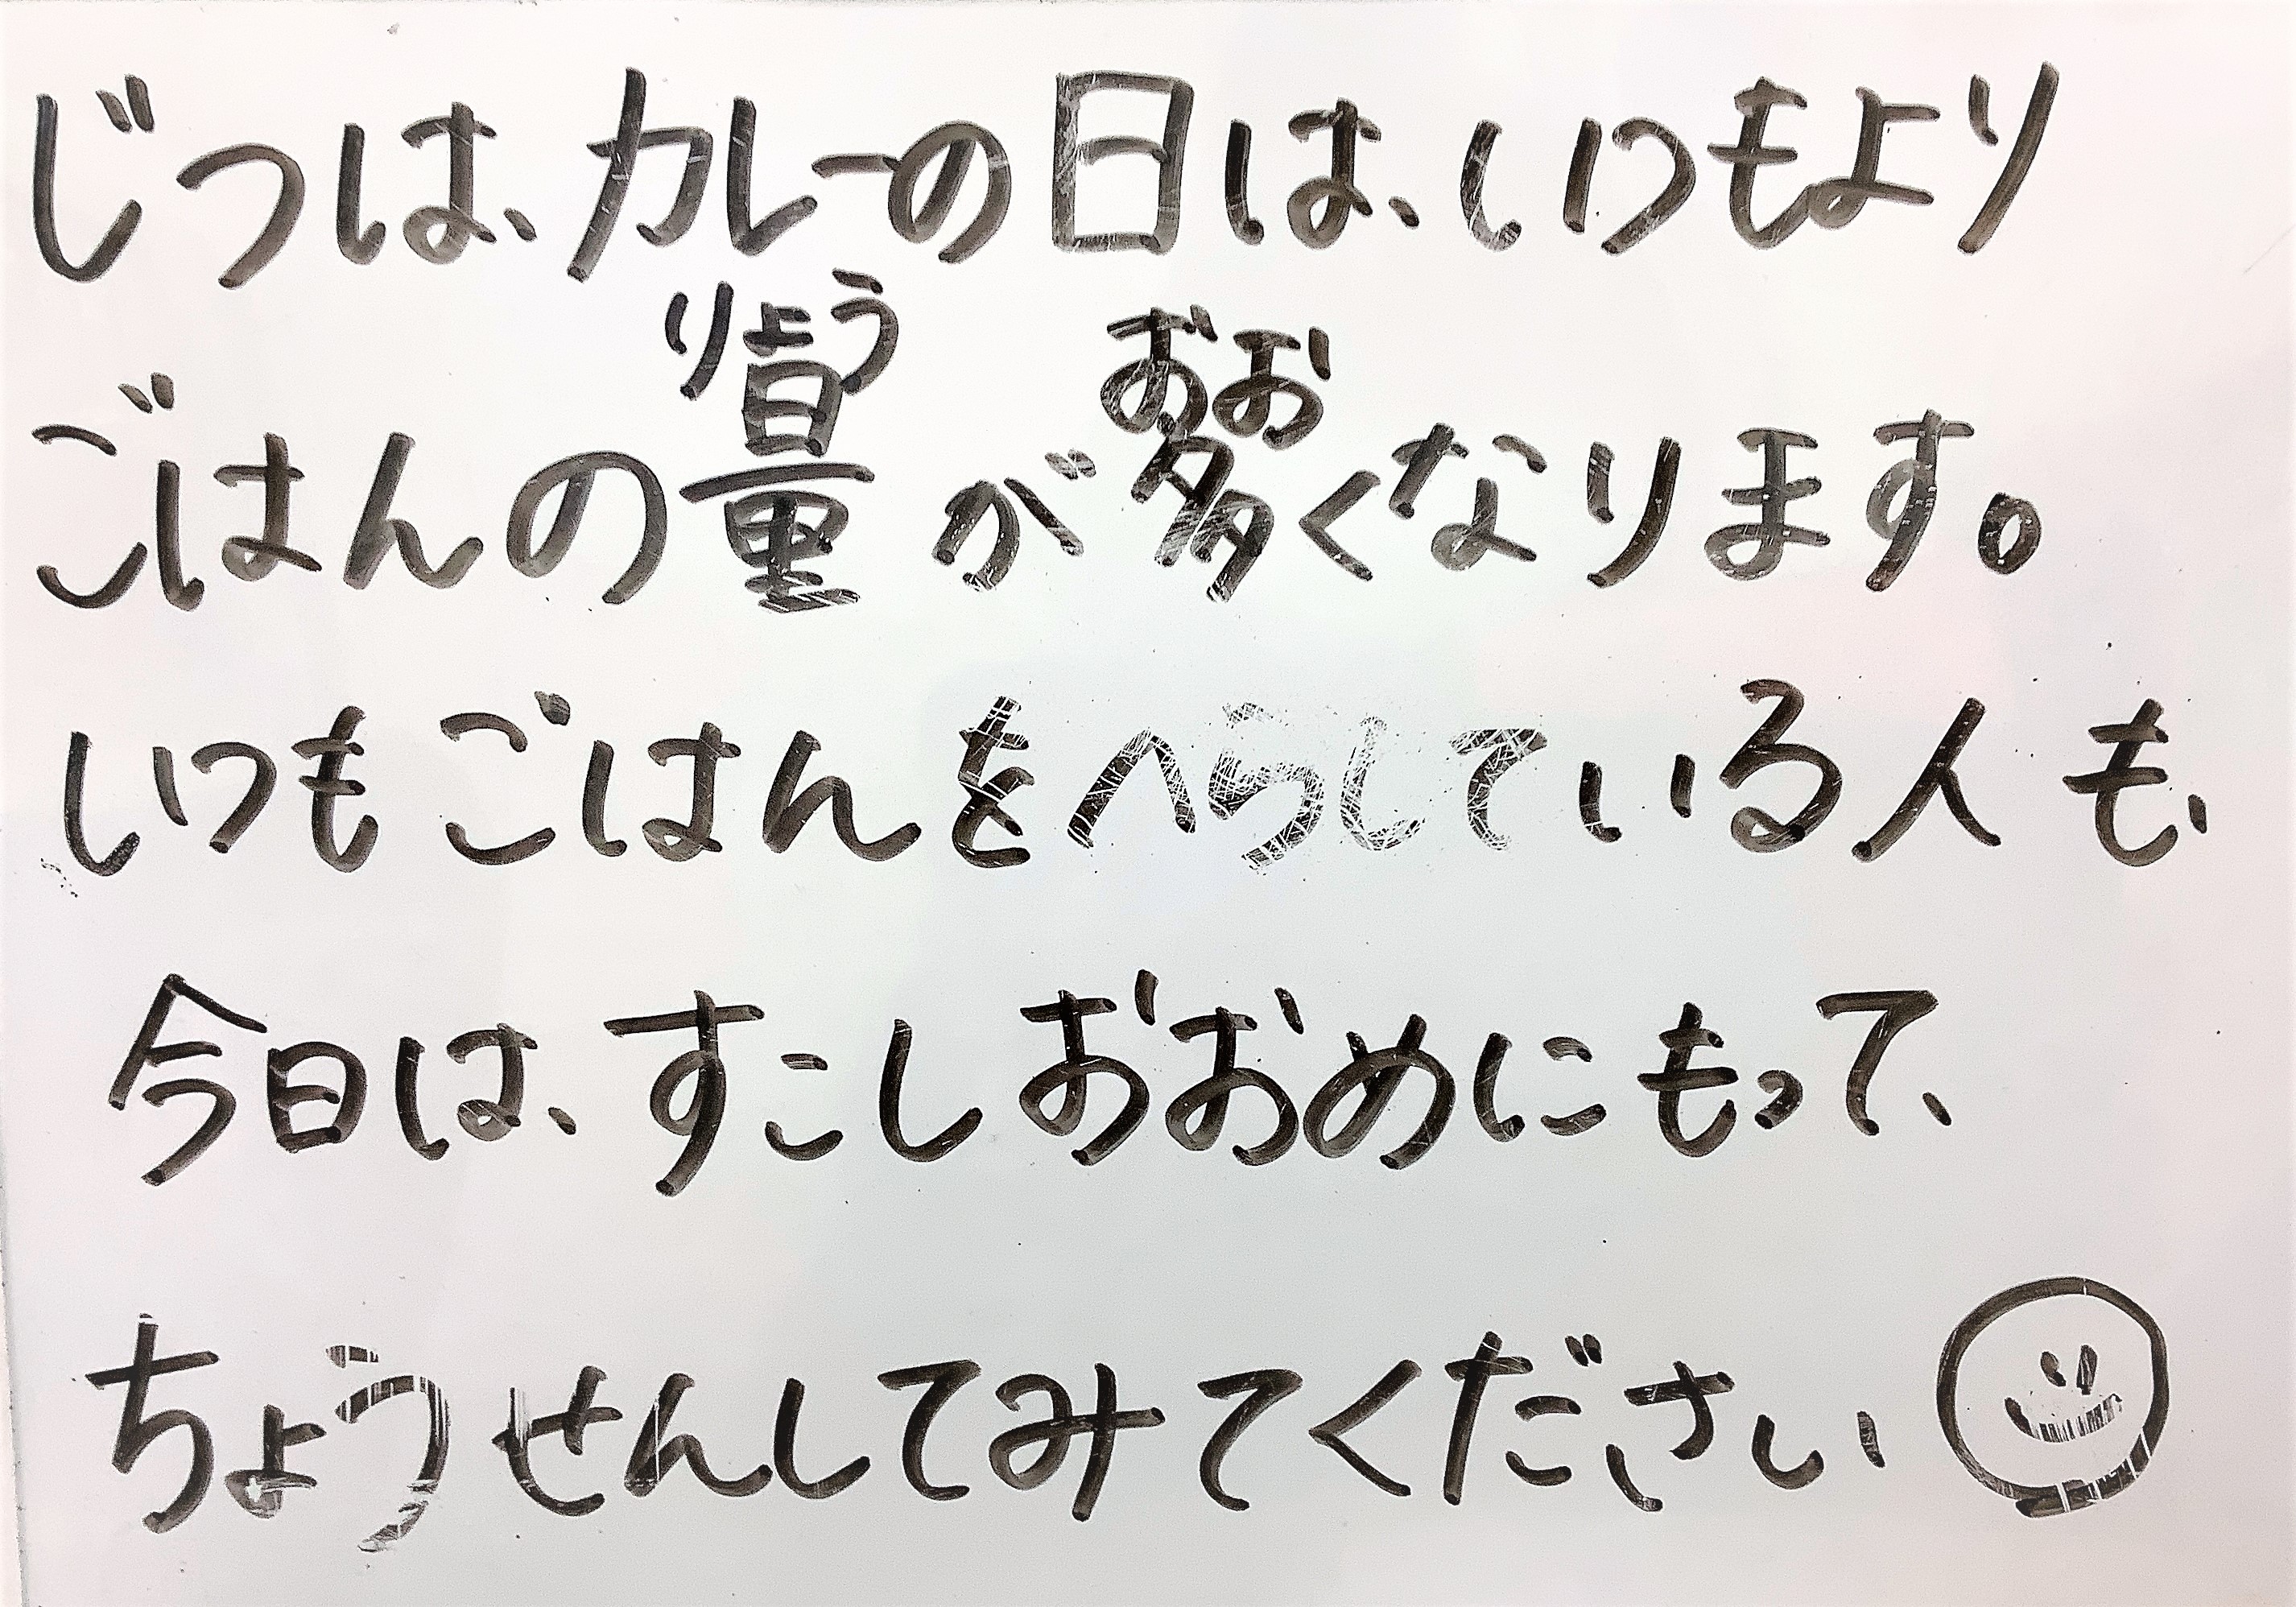 じつは、カレーの日は、いつもより
りょう おお
ごはんの量が多くなります。
いつもごはんをへらしている人も、
今日は、すこしおおめにもって、
ちょうせんしてみてください